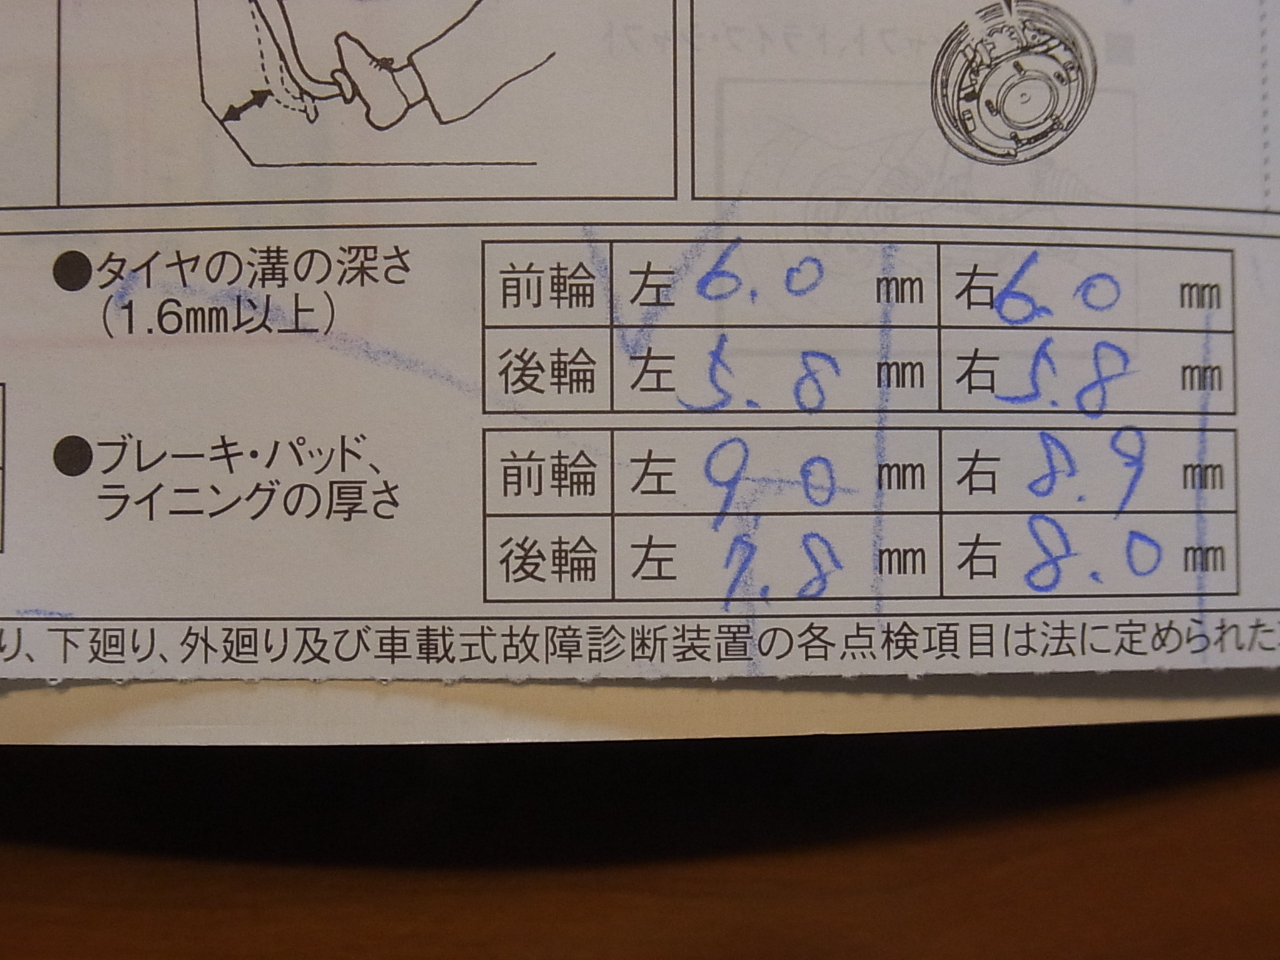 ●タイヤの溝の深さ
(1.6mm以上)
前輪 左 6.0 mm 右 6.0 mm
後輪 左 5.8 mm 右 5.8 mm
●ブレーキ・パッド、
ライニングの厚さ
前輪 左 9.0 mm 右 8.9 mm
後輪 左 7.8 mm 右 8.0 mm
り、下廻り、外廻り及び車載式故障診断装置の各点検項目は法に定められた